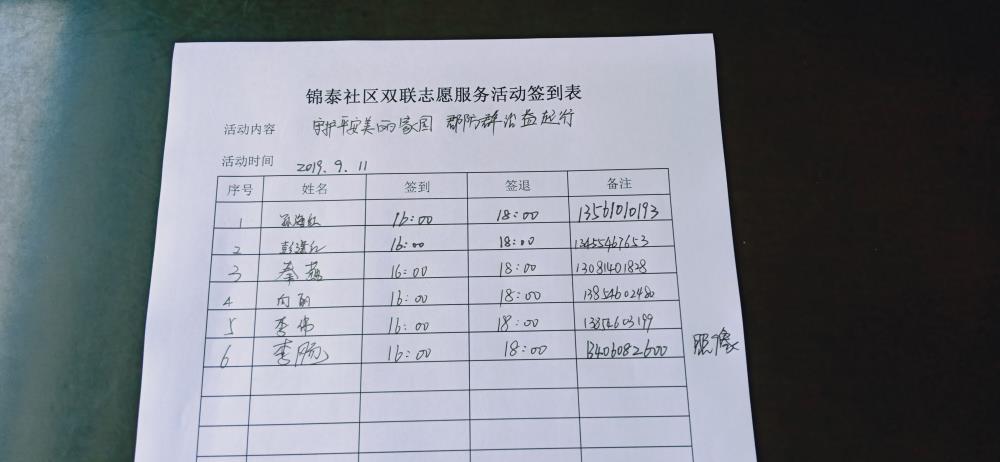 锦泰社区双联志愿服务活动签到表
活动内容 守护平安美丽家园 群防群治益起行
活动时间 2019.9.11
序号 姓名 签到 签退 备注
1 16:00 18:00 13561010193
2 16:00 18:00 13455467653
3 秦燕 16:00 18:00 13081401828
4 向丽 16:00 18:00 13854602480
5 李伟 16:00 18:00
6 李 16:00 18:00 13406082600